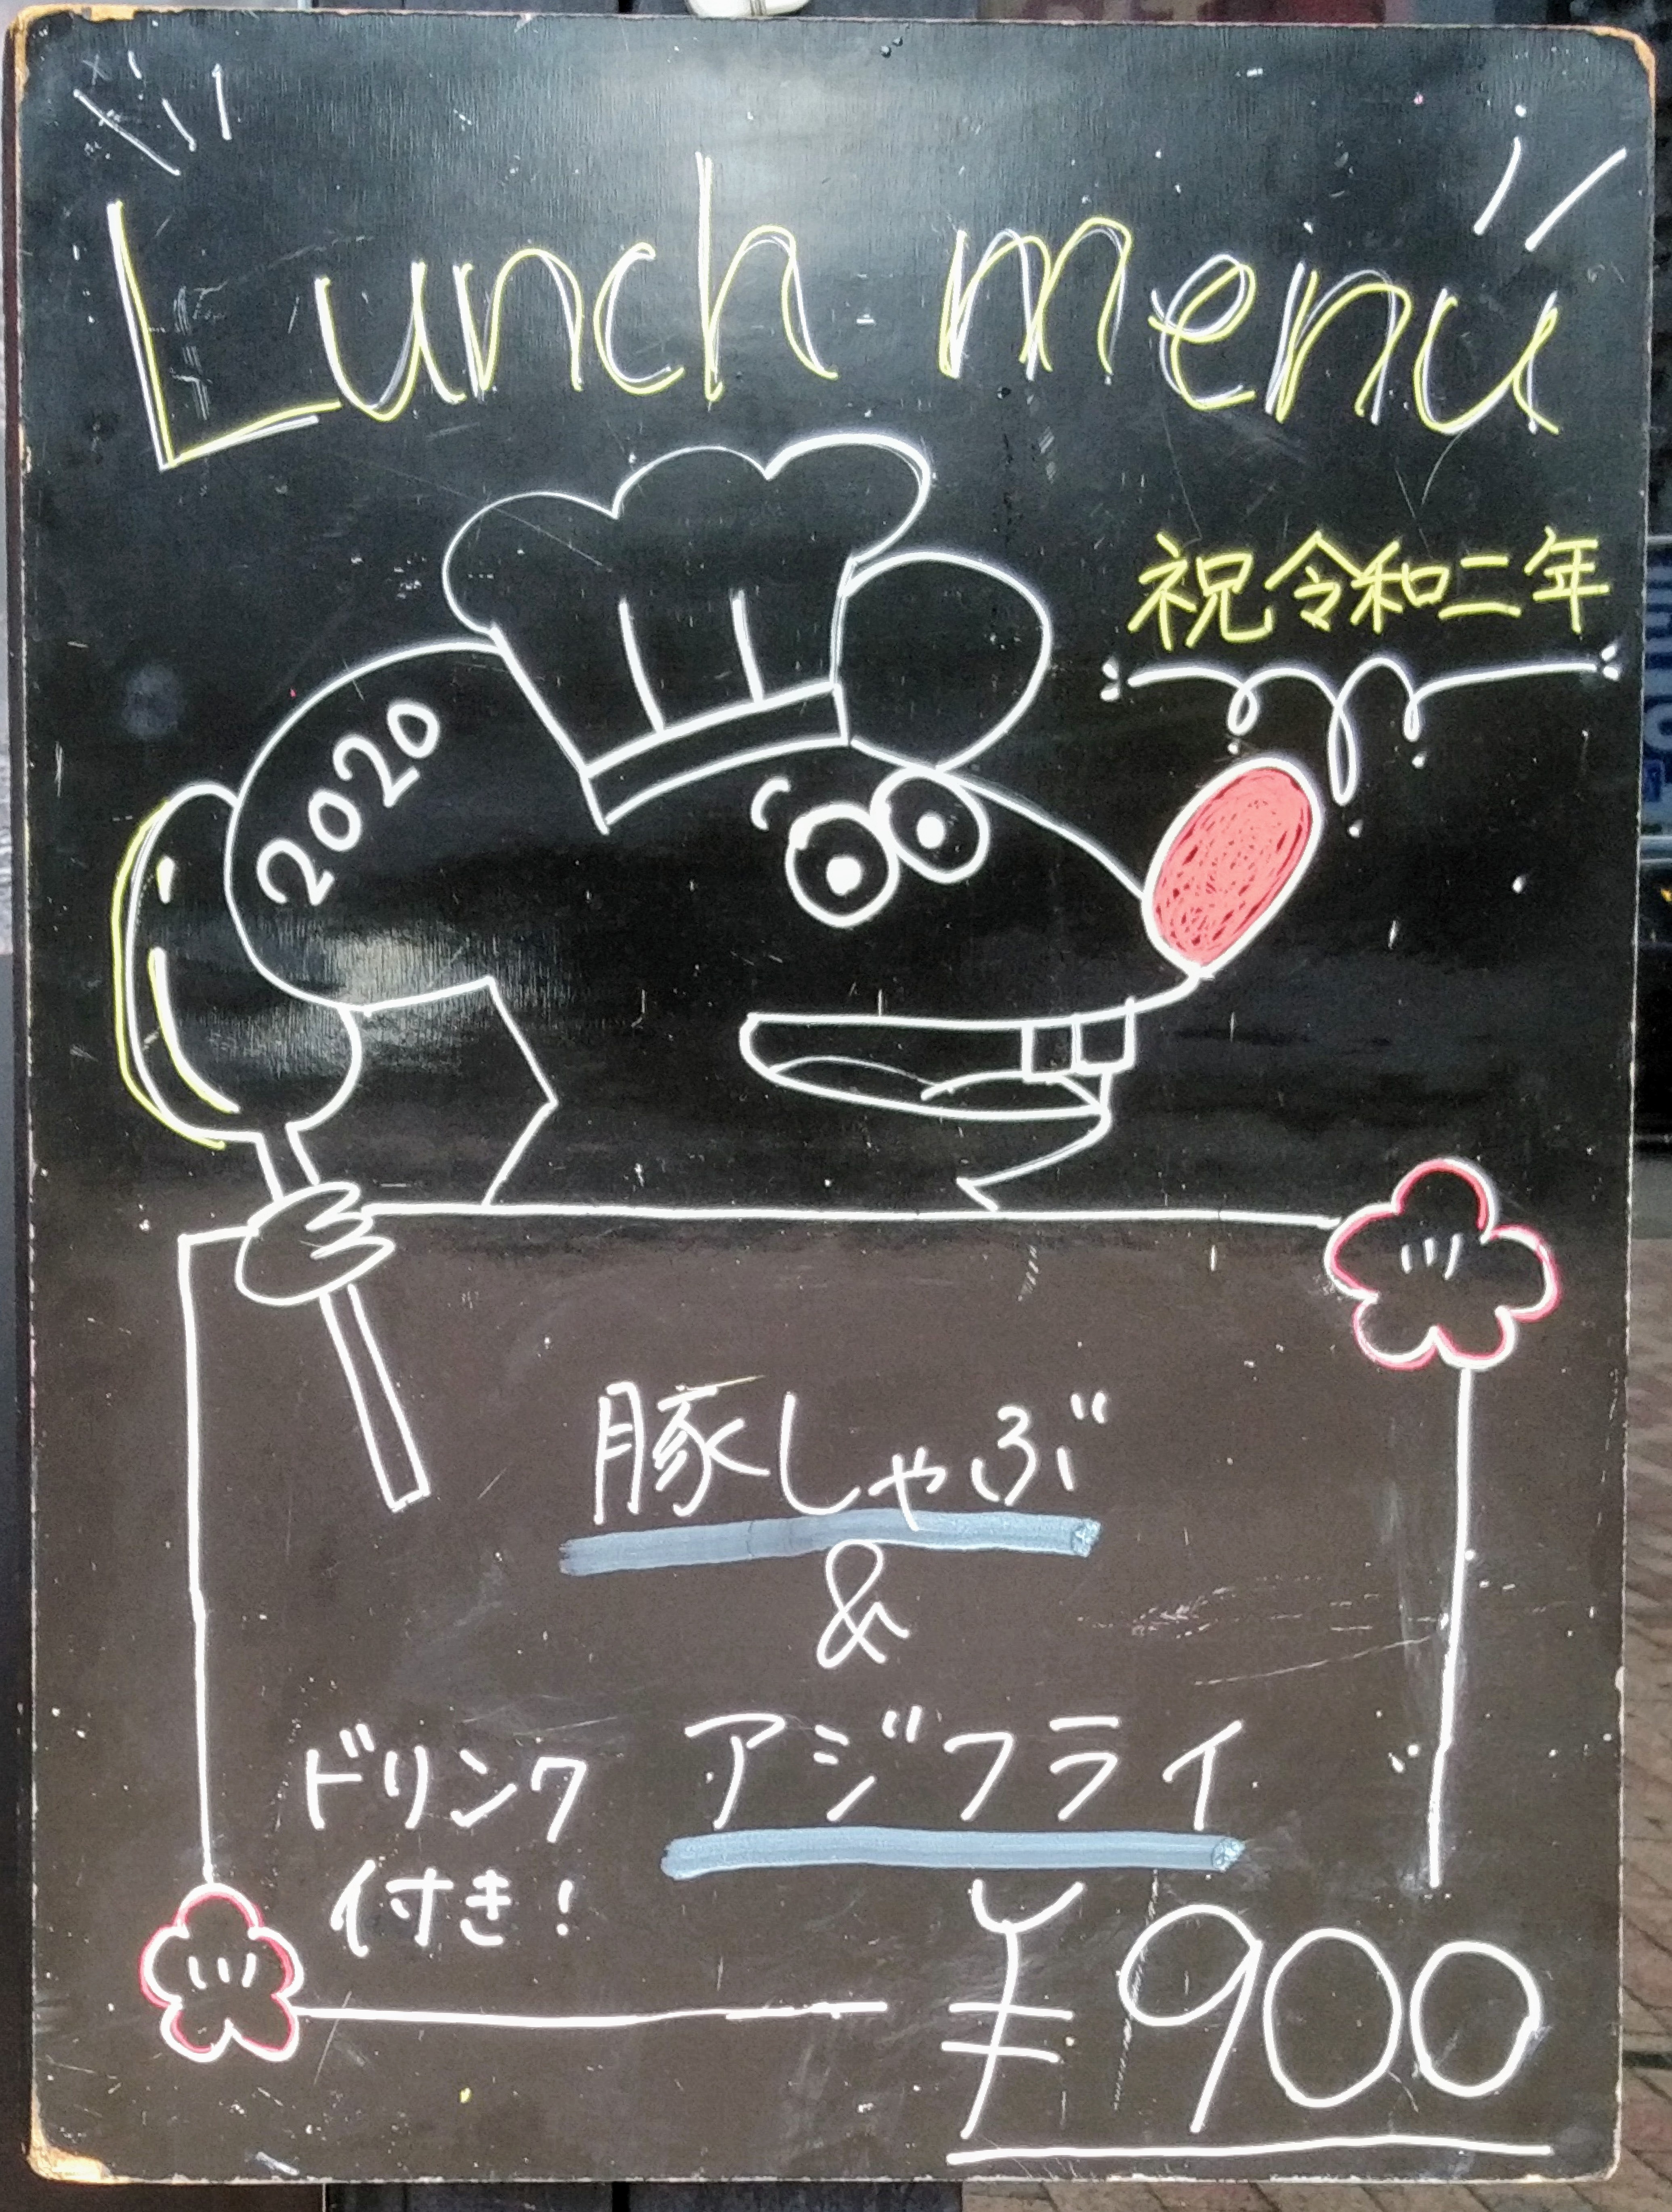 Lunch menu
祝令和二年
2020
豚しゃぶ
&
アジフライ
ドリンク
付き!
¥900